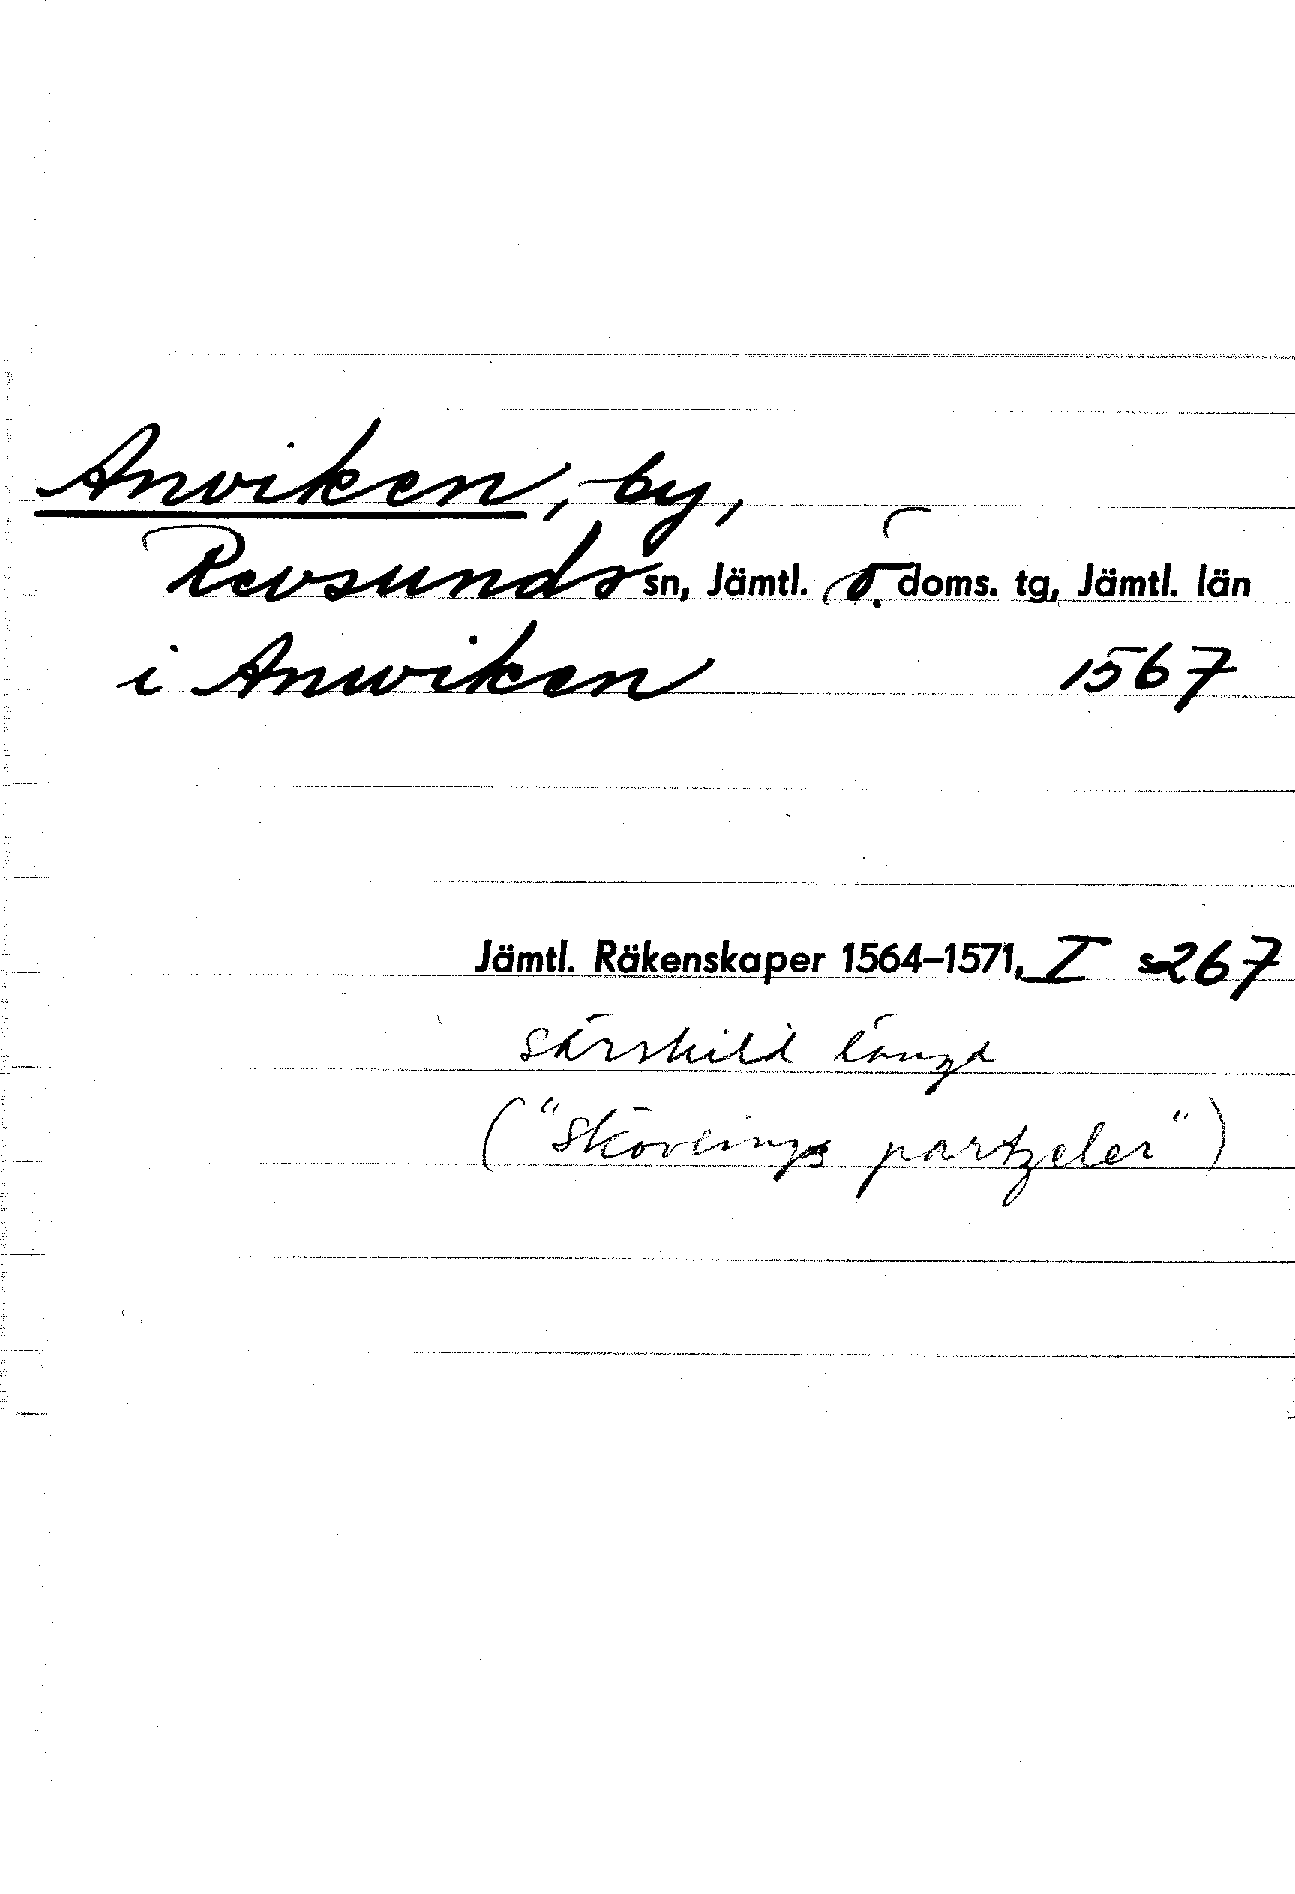 Anviken, by,
Revsunds sn, Jämtl. ö. doms. tg, Jämtl. län
i Anwiken 1567
Jämtl. Räkenskaper 1564–1571, I s 267
särskild längd
("Skövlings partzeler")